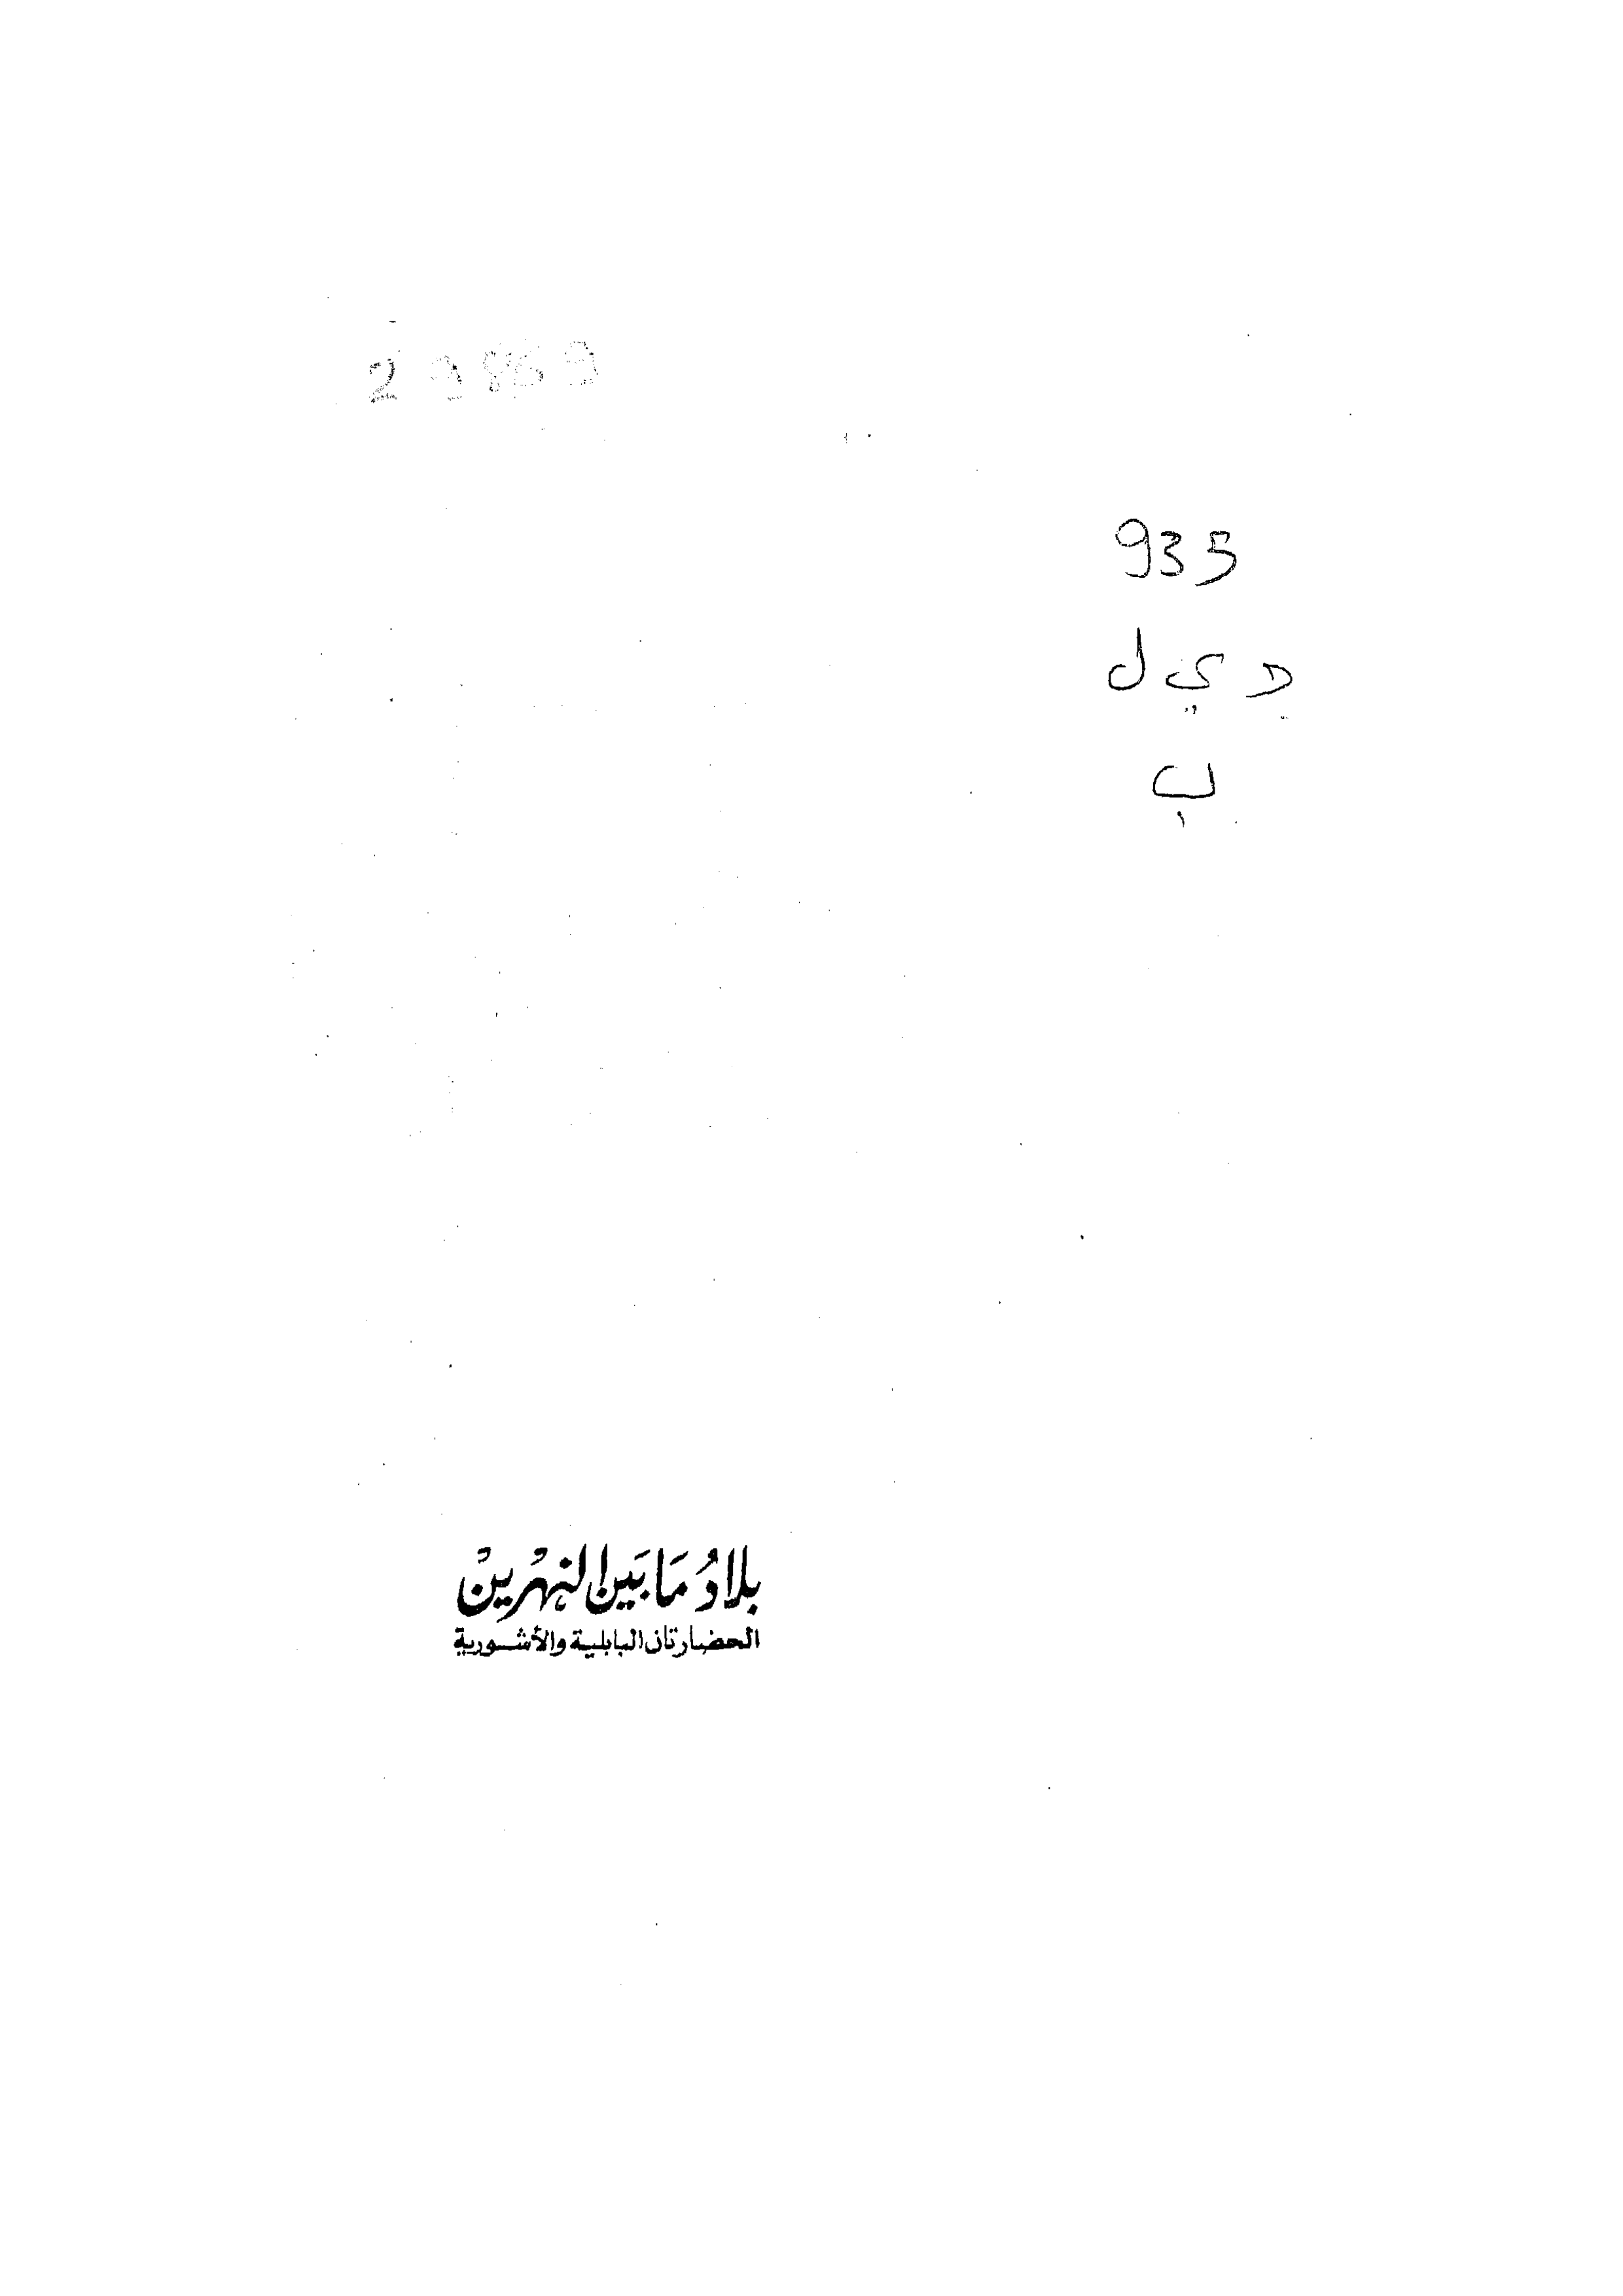 935
د ي ل
ب
بلادُ مَا بَين النهْرينْ
الحضارتان البابلية والأشورية